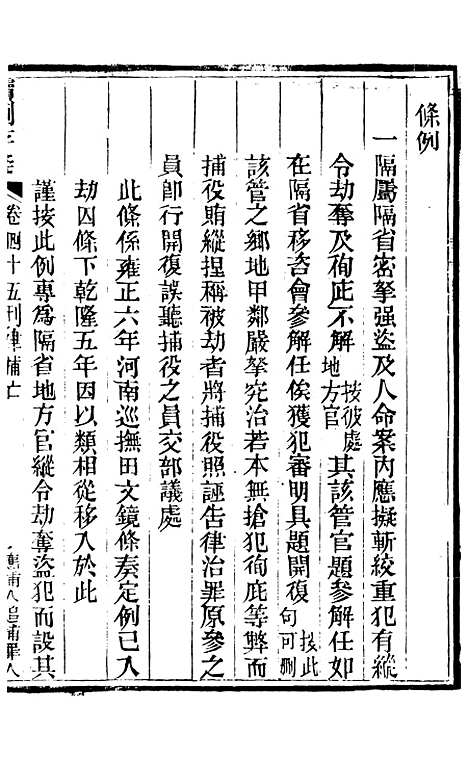 條例
一隔屬隔省密拏强盜及人命案內應擬斬絞重犯有縱
令劫奪及徇庇不解按彼處地方官其該管官題參解任如
在隔省移咨會參解任俟獲犯審明具題開復按此句可刪
該管之鄉地甲鄰嚴拏究治若本無搶犯徇庇等弊而
捕役賄縱捏稱被劫者將捕役照誣告律治罪原參之
員卽行開復誤聽捕役之員交部議處
此條係雍正六年河南巡撫田文鏡條奏定例已入
劫囚條下乾隆五年因以類相從移入於此
謹按此例專爲隔省地方官縱令劫奪盜犯而設其
卷四十五刑律捕亡
應捕人追捕罪人